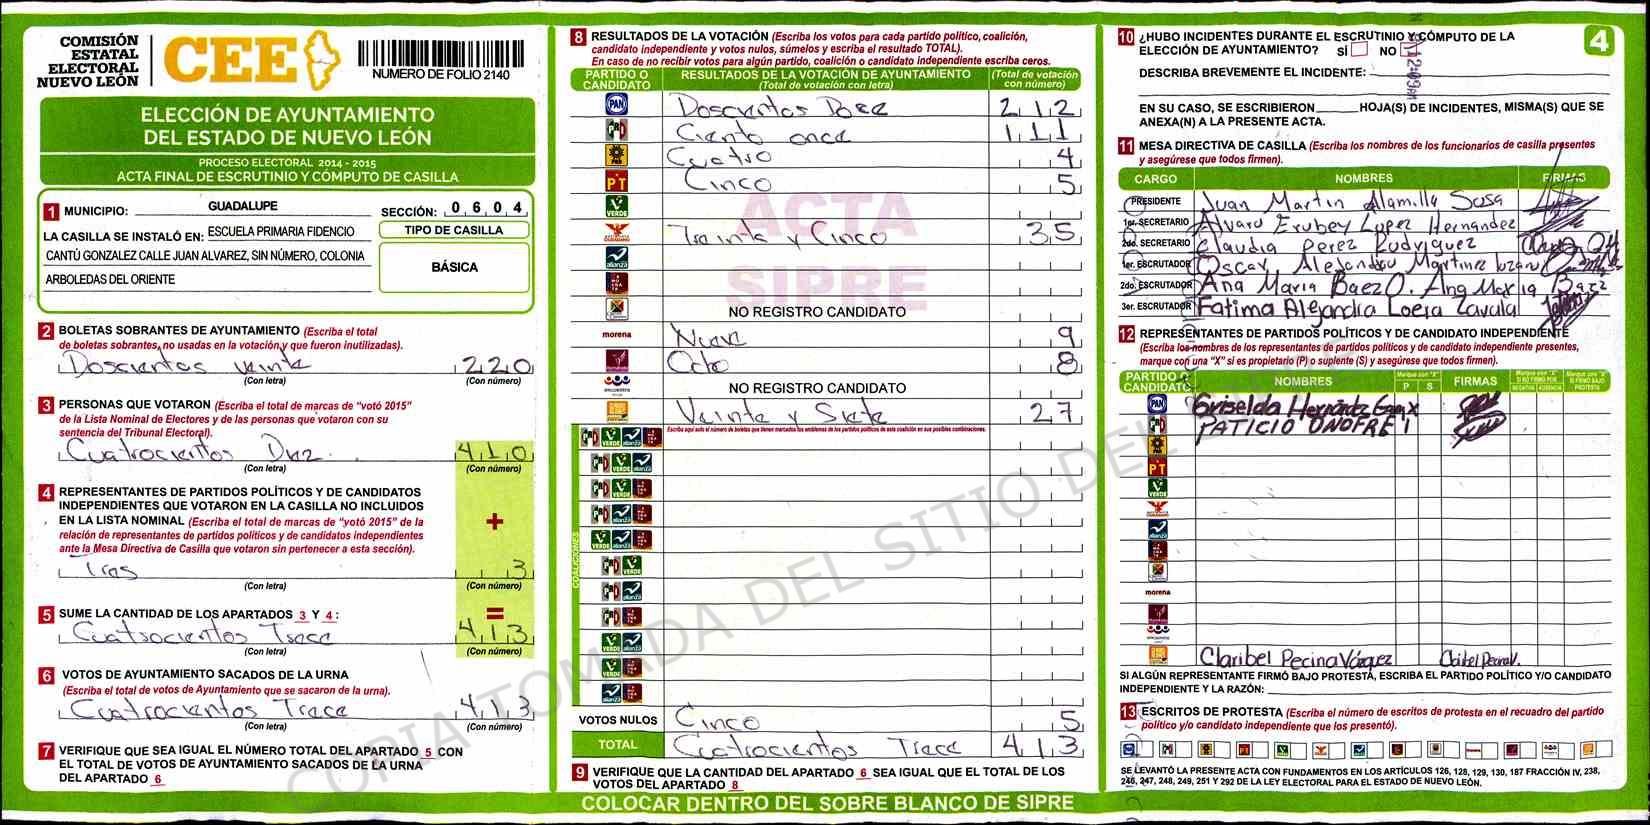 COMISIÓN
ESTATAL
ELECTORAL
NUEVO LEÓN
CEE
NUMERO DE FOLIO 2140
ELECCIÓN DE AYUNTAMIENTO
DEL ESTADO DE NUEVO LEÓN
PROCESO ELECTORAL 2014 - 2015
ACTA FINAL DE ESCRUTINIO Y CÓMPUTO DE CASILLA
1 MUNICIPIO: GUADALUPE SECCIÓN: 0 6 0 4
LA CASILLA SE INSTALÓ EN: ESCUELA PRIMARIA FIDENCIO
CANTÚ GONZALEZ CALLE JUAN ALVAREZ, SIN NÚMERO, COLONIA
ARBOLEDAS DEL ORIENTE
TIPO DE CASILLA
BÁSICA
2 BOLETAS SOBRANTES DE AYUNTAMIENTO (Escriba el total
de boletas sobrantes, no usadas en la votación y que fueron inutilizadas).
Doscientos veinte 220
(Con letra) (Con número)
3 PERSONAS QUE VOTARON (Escriba el total de marcas de "votó 2015"
de la Lista Nominal de Electores y de las personas que votaron con su
sentencia del Tribunal Electoral).
Cuatrocientos Diez 410
(Con letra) (Con número)
4 REPRESENTANTES DE PARTIDOS POLÍTICOS Y DE CANDIDATOS
INDEPENDIENTES QUE VOTARON EN LA CASILLA NO INCLUIDOS
EN LA LISTA NOMINAL (Escriba el total de marcas de "votó 2015" de la
relación de representantes de partidos políticos y de candidatos independientes
ante la Mesa Directiva de Casilla que votaron sin pertenecer a esta sección).
+
Tres 3
(Con letra) (Con número)
5 SUME LA CANTIDAD DE LOS APARTADOS 3 Y 4: =
Cuatrocientos Trece 413
(Con letra) (Con número)
6 VOTOS DE AYUNTAMIENTO SACADOS DE LA URNA
(Escriba el total de votos de Ayuntamiento que se sacaron de la urna).
Cuatrocientos Trece 413
(Con letra) (Con número)
7 VERIFIQUE QUE SEA IGUAL EL NÚMERO TOTAL DEL APARTADO 5 CON
EL TOTAL DE VOTOS DE AYUNTAMIENTO SACADOS DE LA URNA
DEL APARTADO 6
8 RESULTADOS DE LA VOTACIÓN (Escriba los votos para cada partido político, coalición,
candidato independiente y votos nulos, súmelos y escriba el resultado TOTAL).
En caso de no recibir votos para algún partido, coalición o candidato independiente escriba ceros.
PARTIDO O CANDIDATO RESULTADOS DE LA VOTACIÓN DE AYUNTAMIENTO (Total de votación con letra) (Total de votación con número)
PAN Doscientos Doce 212
PRI Ciento once 111
PRD Cuatro 4
PT Cinco 5
VERDE
Treinta y Cinco 35
alianza
NO REGISTRO CANDIDATO
morena Nueve 9
Ocho 8
NO REGISTRO CANDIDATO
Veinte y Siete 27
Escriba aquí solo el número de boletas que tienen marcados los emblemas de los partidos políticos de esta coalición en sus posibles combinaciones.
COALICIONES
VOTOS NULOS Cinco 5
TOTAL Cuatrocientos Trece 413
9 VERIFIQUE QUE LA CANTIDAD DEL APARTADO 6 SEA IGUAL QUE EL TOTAL DE LOS
VOTOS DEL APARTADO 8
ACTA
SIPRE
COPIA TOMADA DEL SITIO DEL
COLOCAR DENTRO DEL SOBRE BLANCO DE SIPRE
4
10 ¿HUBO INCIDENTES DURANTE EL ESCRUTINIO Y CÓMPUTO DE LA
ELECCIÓN DE AYUNTAMIENTO? SÍ NO
DESCRIBA BREVEMENTE EL INCIDENTE:
EN SU CASO, SE ESCRIBIERON HOJA(S) DE INCIDENTES, MISMA(S) QUE SE
ANEXA(N) A LA PRESENTE ACTA.
11 MESA DIRECTIVA DE CASILLA (Escriba los nombres de los funcionarios de casilla presentes
y asegúrese que todos firmen).
CARGO NOMBRES FIRMAS
PRESIDENTE Juan Martin Alamilla Sosa
1er. SECRETARIO Alvaro Erubey Lopez Hernandez
2do. SECRETARIO Claudia Perez Rudriguez
1er. ESCRUTADOR Oscar Alejandro Martinez
2do. ESCRUTADOR Ana Maria Baez O. Ana Maria Baez
3er. ESCRUTADOR Fatima Alejandra Loera Zavala
12 REPRESENTANTES DE PARTIDOS POLÍTICOS Y DE CANDIDATO INDEPENDIENTE
(Escriba los nombres de los representantes de partidos políticos y de candidato independiente presentes,
marque con una "X" si es propietario (P) o suplente (S) y asegúrese que todos firmen).
PARTIDO O CANDIDATO NOMBRES Marque con "X" P S FIRMAS
PAN Griselda X
PRI PATICIO ONOFRE
PRD
PT
VERDE
morena
Claribel Pecina Vázquez
SI ALGÚN REPRESENTANTE FIRMÓ BAJO PROTESTA, ESCRIBA EL PARTIDO POLÍTICO Y/O CANDIDATO
INDEPENDIENTE Y LA RAZÓN:
13 ESCRITOS DE PROTESTA (Escriba el número de escritos de protesta en el recuadro del partido
político y/o candidato independiente que los presentó).
SE LEVANTÓ LA PRESENTE ACTA CON FUNDAMENTOS EN LOS ARTÍCULOS 126, 128, 129, 130, 187 FRACCIÓN IV, 238,
246, 247, 248, 249, 251 Y 292 DE LA LEY ELECTORAL PARA EL ESTADO DE NUEVO LEÓN.